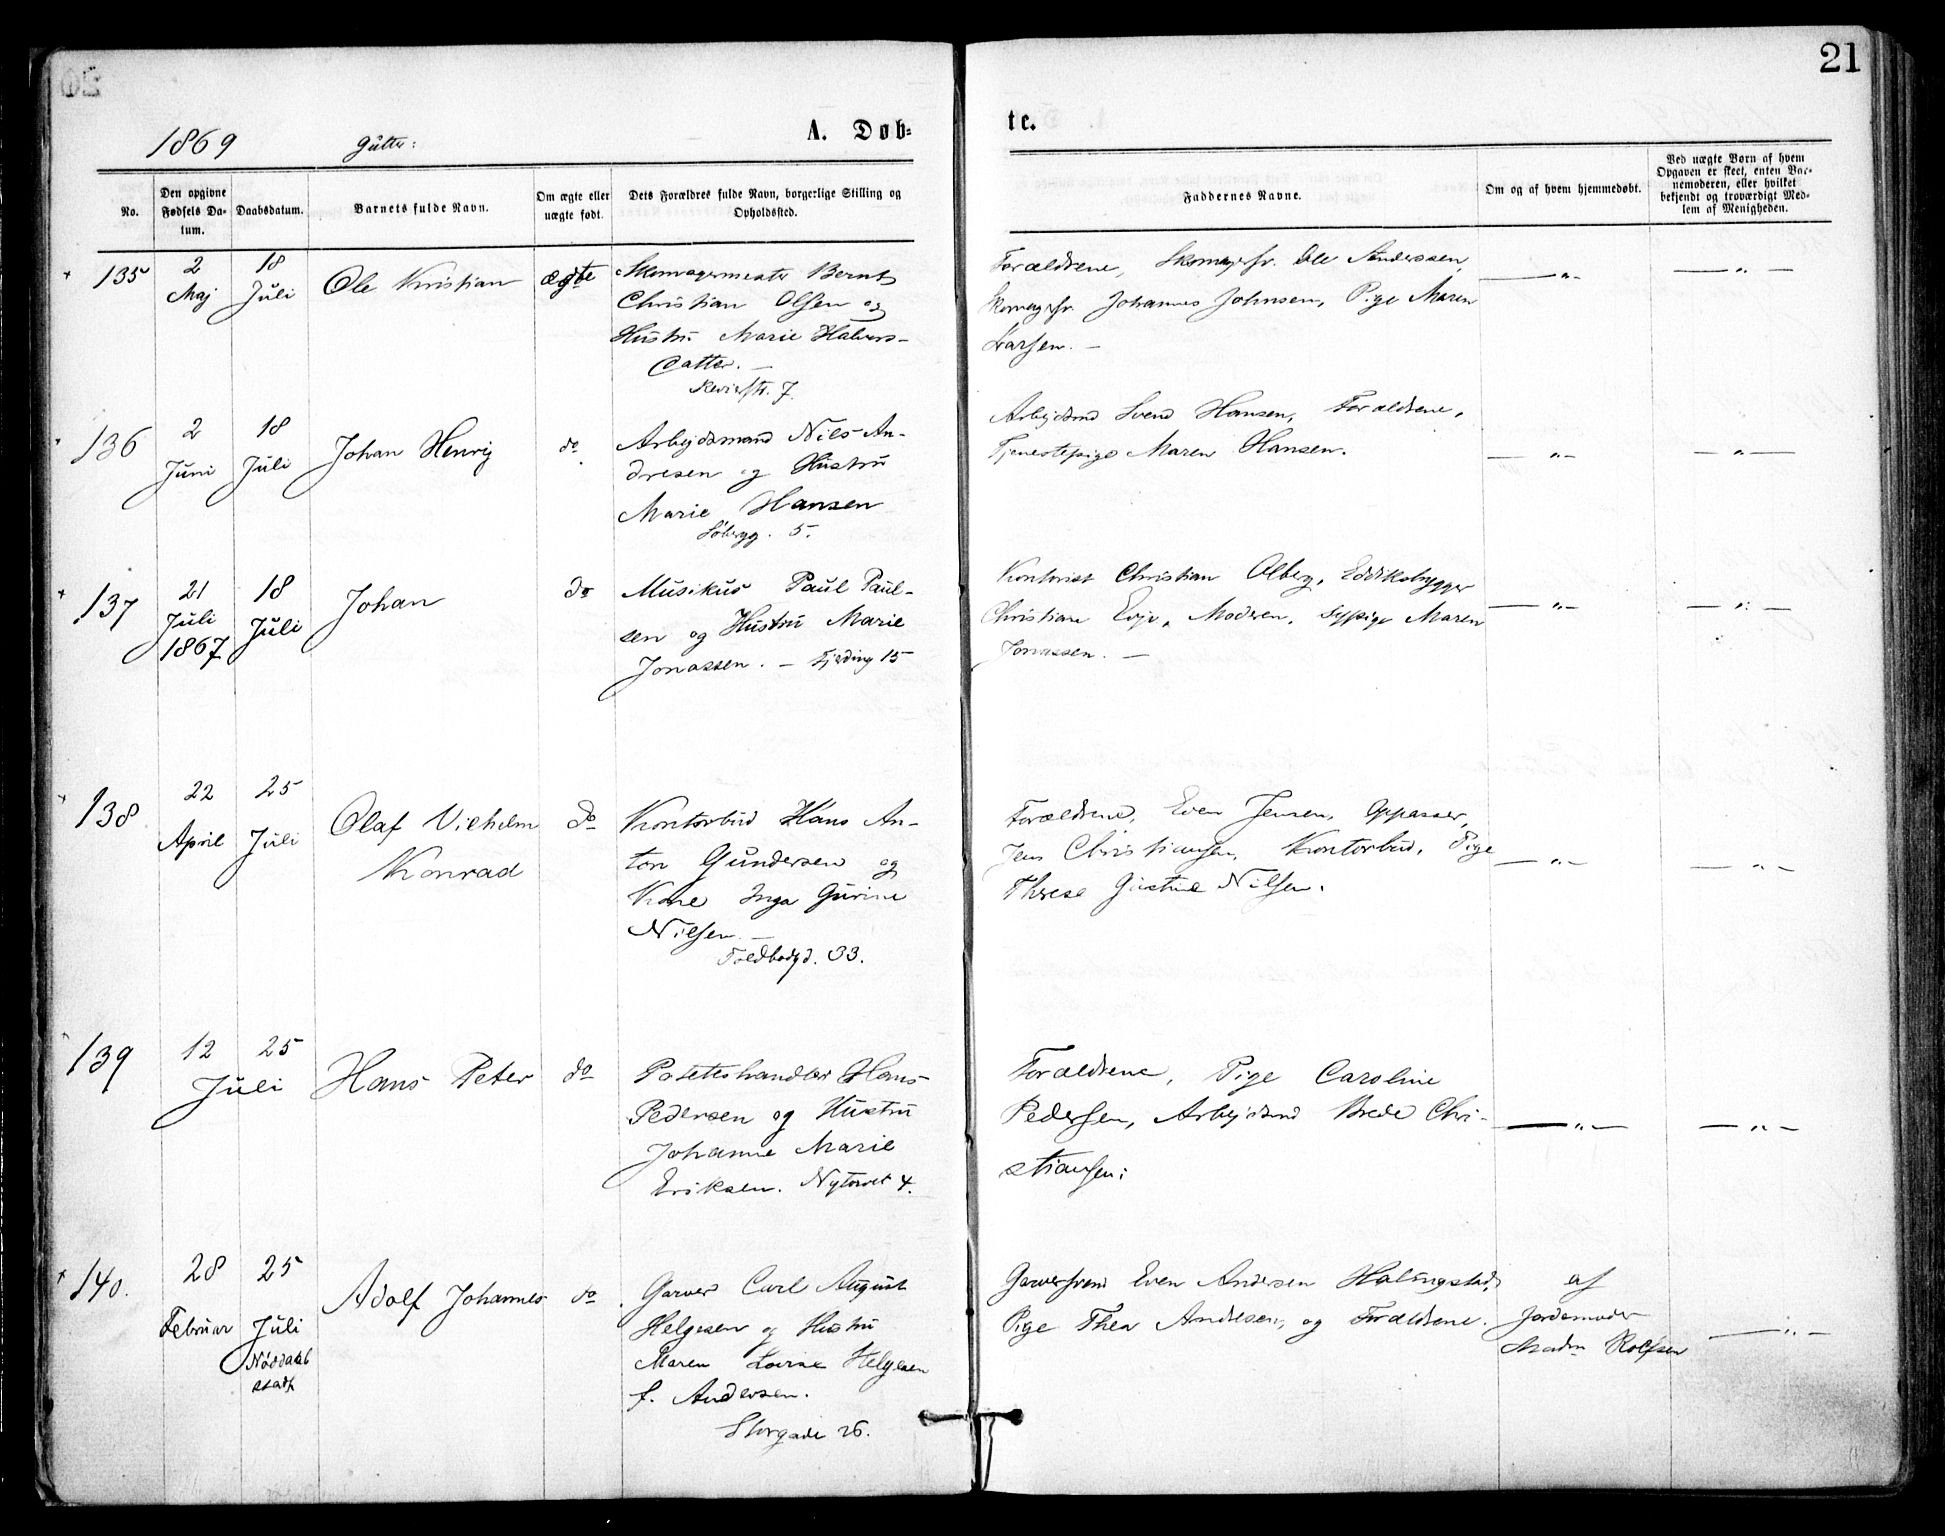 21
1869 Gutter:
A. Døb-
te.
No.
Den opgivne Fødsels Da-
tum.
Daabsdatum.
Barnets fulde Navn.
Om ægte eller
uægte født.
Dets Forældres fulde Navn, borgerlige Stilling og
Opholdssted.
Faddernes Navne.
Om og af hvem hjemmedøbt.
Ved uægte Børn af hvem
Opgaven er skeet, enten Bar-
nemoderen, eller hvilket
bekjendt og troværdigt Med-
lem af Menigheden.
135
2
Maj
18
Juli
Ole Kristian
ægte
Skomagermester Bernt
Christian Olsen og
Hustru Marie Halvors-
datter. —
Revierstr. 7.
Forældrene, Skomagersv. Ole Anderssen,
Skomagersv. Johannes Johnsen, Pige Maren
Larsen. —
— „ —
— „ —
136
2
Juni
18
Juli
Johan Henrig
do
Arbejdsmand Nils An-
dresen og Hustru
Marie Hansen
5.
Arbejdsmd Svend Hansen, Forældrene,
Tjenestepige Maren Hansen.
— „ —
— „ —
137
21
Juli
1867
18
Juli
Johan
do
Musikus Paul Paul-
sen og Hustru Marie
Jonassen. — Fjerding 15
Kontorist Christian Olberg, Eddikebrygger
Christian Evje, Moderen, Sypige Maren
Jonassen. —
— „ —
— „ —
138
22
April
25
Juli
Olaf Vilhelm
Konrad
do
Kontorbud Hans An-
ton Gundersen og
Kone Inga Gurine
Nilsen —
Toldbodgd. 33.
Forældrene, Even Jensen, Oppasser,
Jens Christiansen, Kontorbud, Pige
Therese Gustine Nilsen.
— „ —
— „ —
139
12
25
Juli
Hans Peter
do
Poteteshandler Hans
Pedersen og Hustru
Johanne Marie
Eriksen. Nytorvet 4.
Forældrene, Pige Caroline
Pedersen, Arbejdsmd Brede Chri-
stiansen;
— „ —
— „ —
140.
28
Februar
25
Juli
Nøddaab
stadf
Adolf Johannes
do
Garver Carl August
Helgesen og Hustru
Maren Lovise Helgesen
f. Andersen.
Storgade 26.
Garversvend Even Andersen Halingstad,
Pige Thea Andresen, og Forældrene.
af
Jordemoder
Madm Rolfsen
— „ —